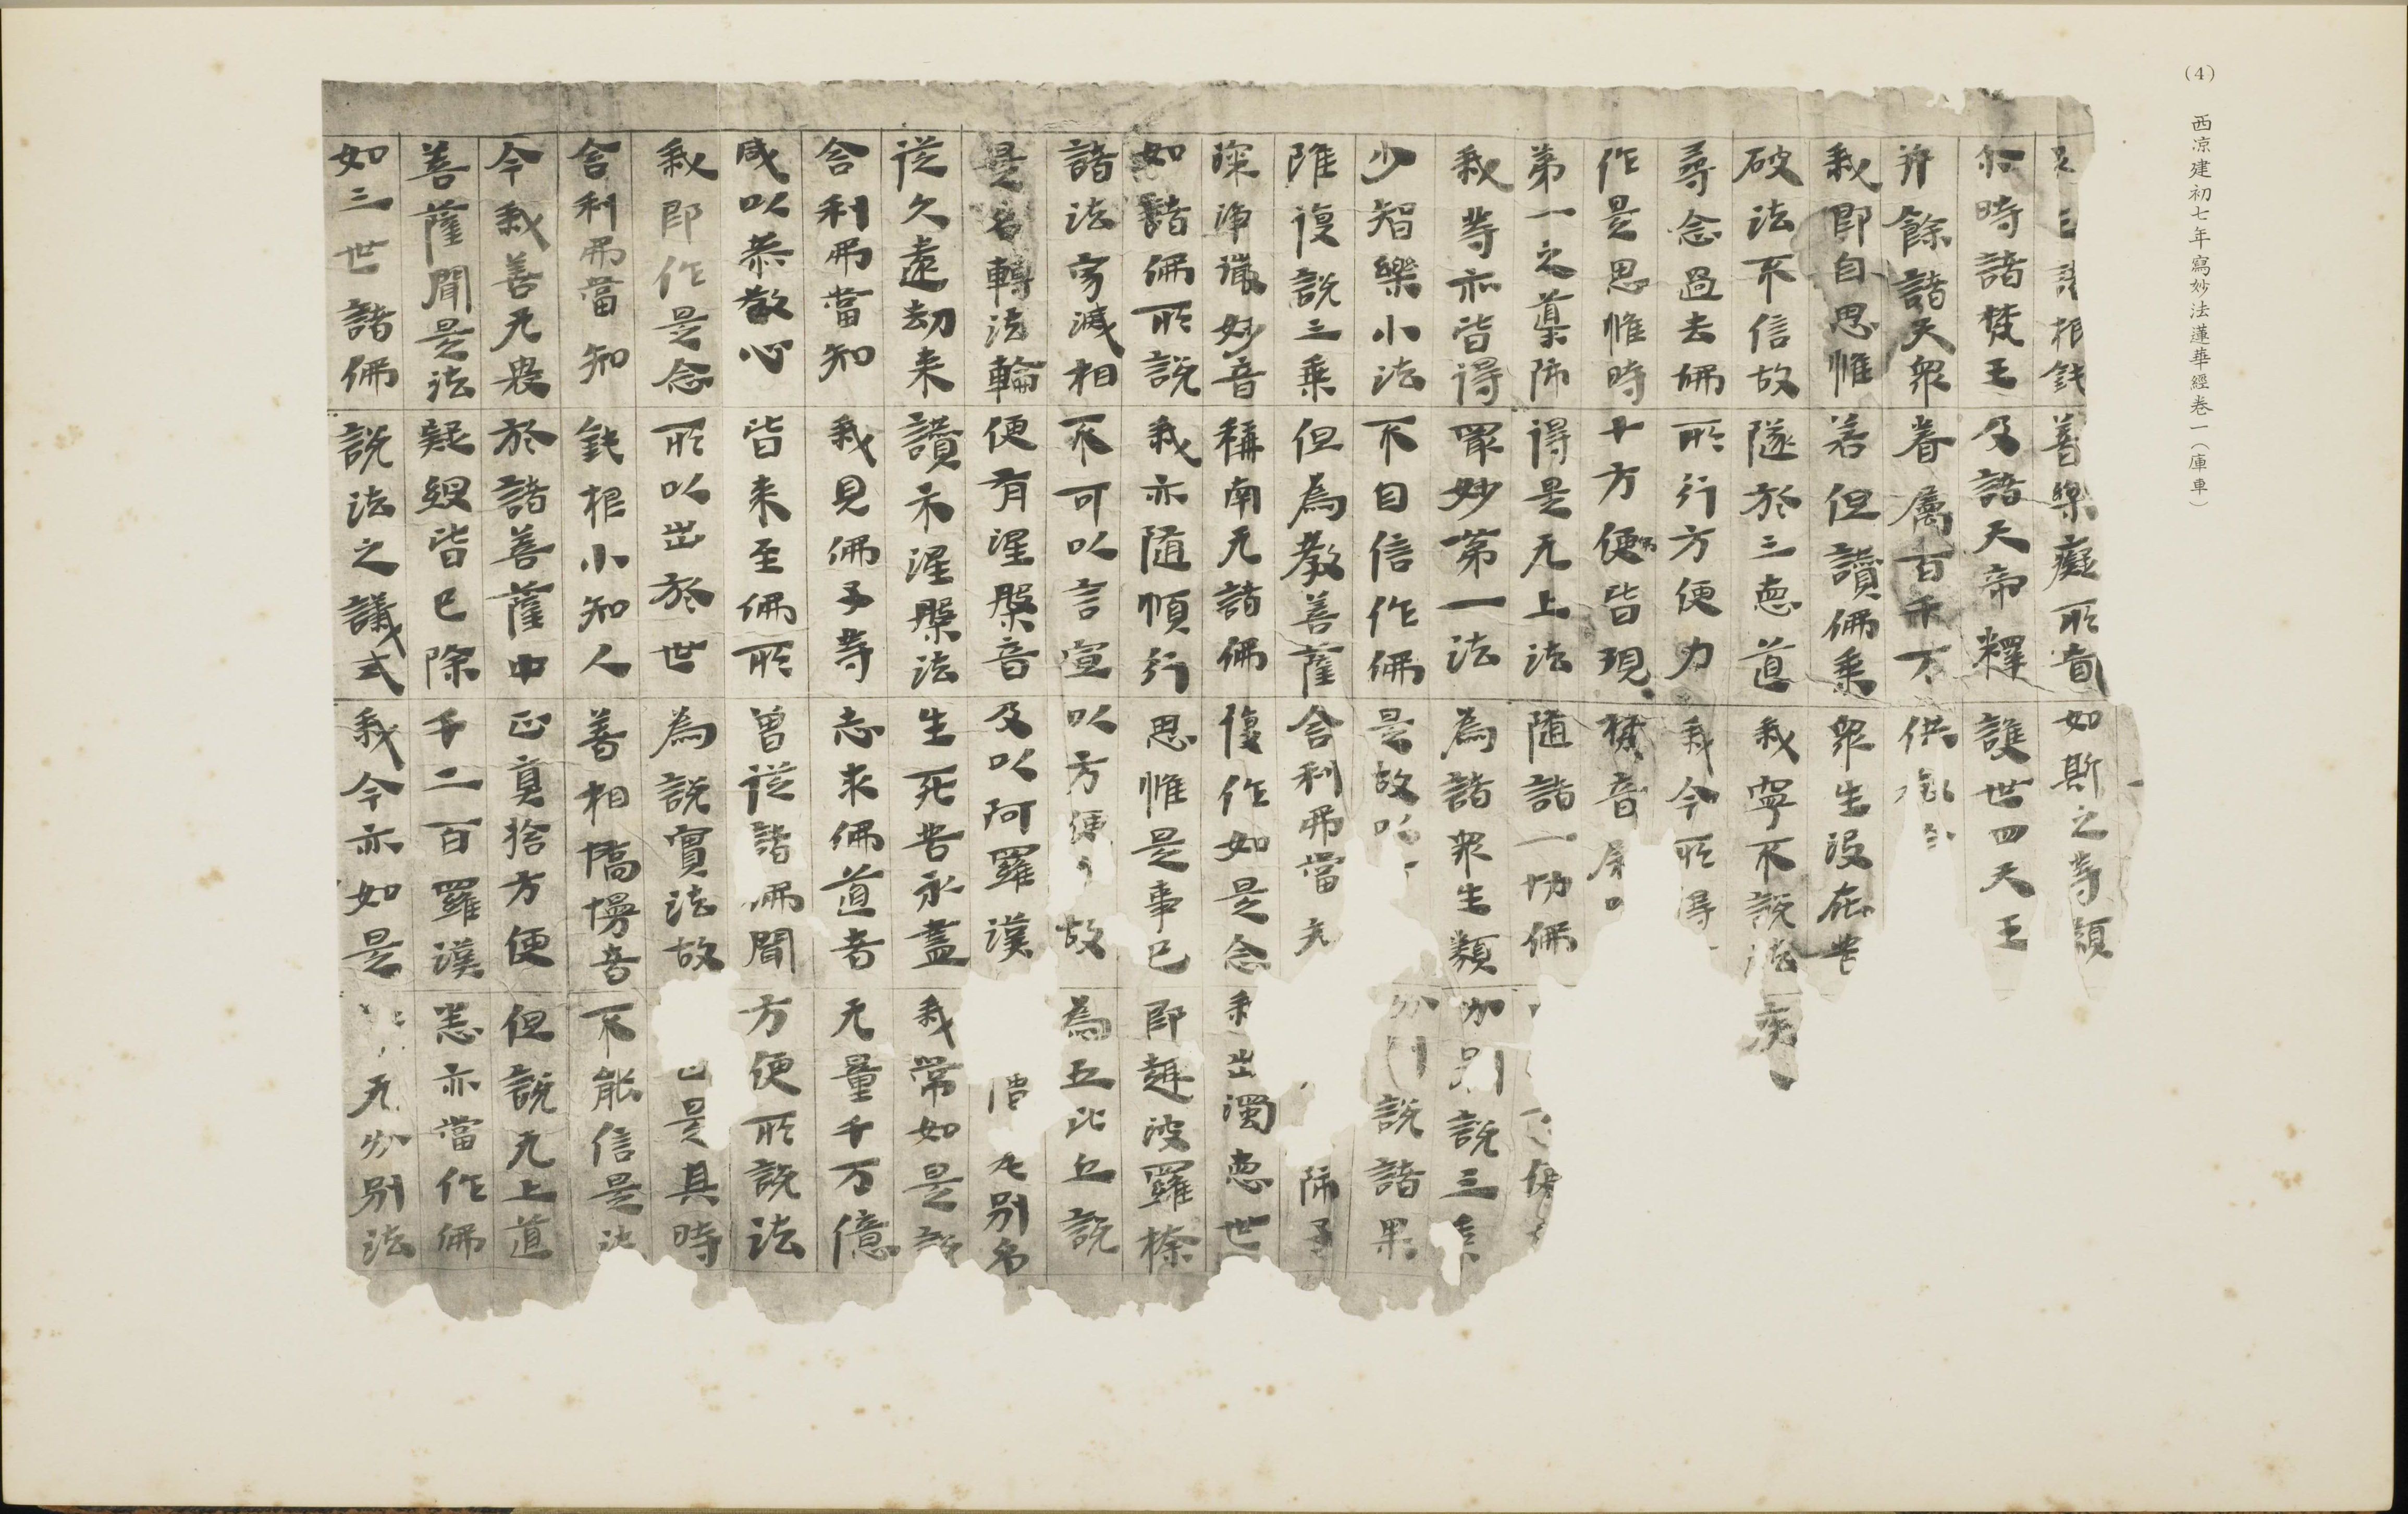 (4) 西凉建初七年寫妙法蓮華經卷一（庫車）
根鈍 著樂癡所盲 如斯之等類
尒時諸梵王 及諸天帝釋 護世四天王
并餘諸天衆 眷属百千万 供
我即自思惟 若但讃佛乘 衆生没在苦
破法不信故 墜於三惡道 我寧不說法 疾
尋念過去佛 所行方便力 我今所得
作是思惟時 十方佛皆現 梵音
第一之導師 得是无上法 随諸一切佛
我等亦皆得 㝡妙第一法 為諸衆生類 分別說三乘
少智樂小法 不自信作佛 是故以 分別說諸果
唯復說三乘 但為教菩薩 舍利弗當 師子
深淨微妙音 稱南无諸佛 復作如是念 我出濁惡世
如諸佛所說 我亦随順行 思惟是事已 即趣波羅㮈
諸法寂滅相 不可以言宣 以方便 故 為五比丘說
是名轉法輪 便有涅槃音 及以阿羅漢 僧 別名
從久遠劫来 讃示涅槃法 生死苦永盡 我常如是說
舍利弗當知 我見佛子等 志求佛道者 无量千万億
咸以恭敬心 皆来至佛所 曾從諸佛聞 方便所說法
我即作是念 所以出於世 為說實法故 是其時
舍利弗當知 鈍根小知人 著相憍慢者 不能信是法
今我喜无畏 於諸菩薩中 正真捨方便 但說无上道
菩薩聞是法 疑網皆已除 千二百羅漢 悉亦當作佛
如三世諸佛 說法之議式 我今亦如是 无分別法